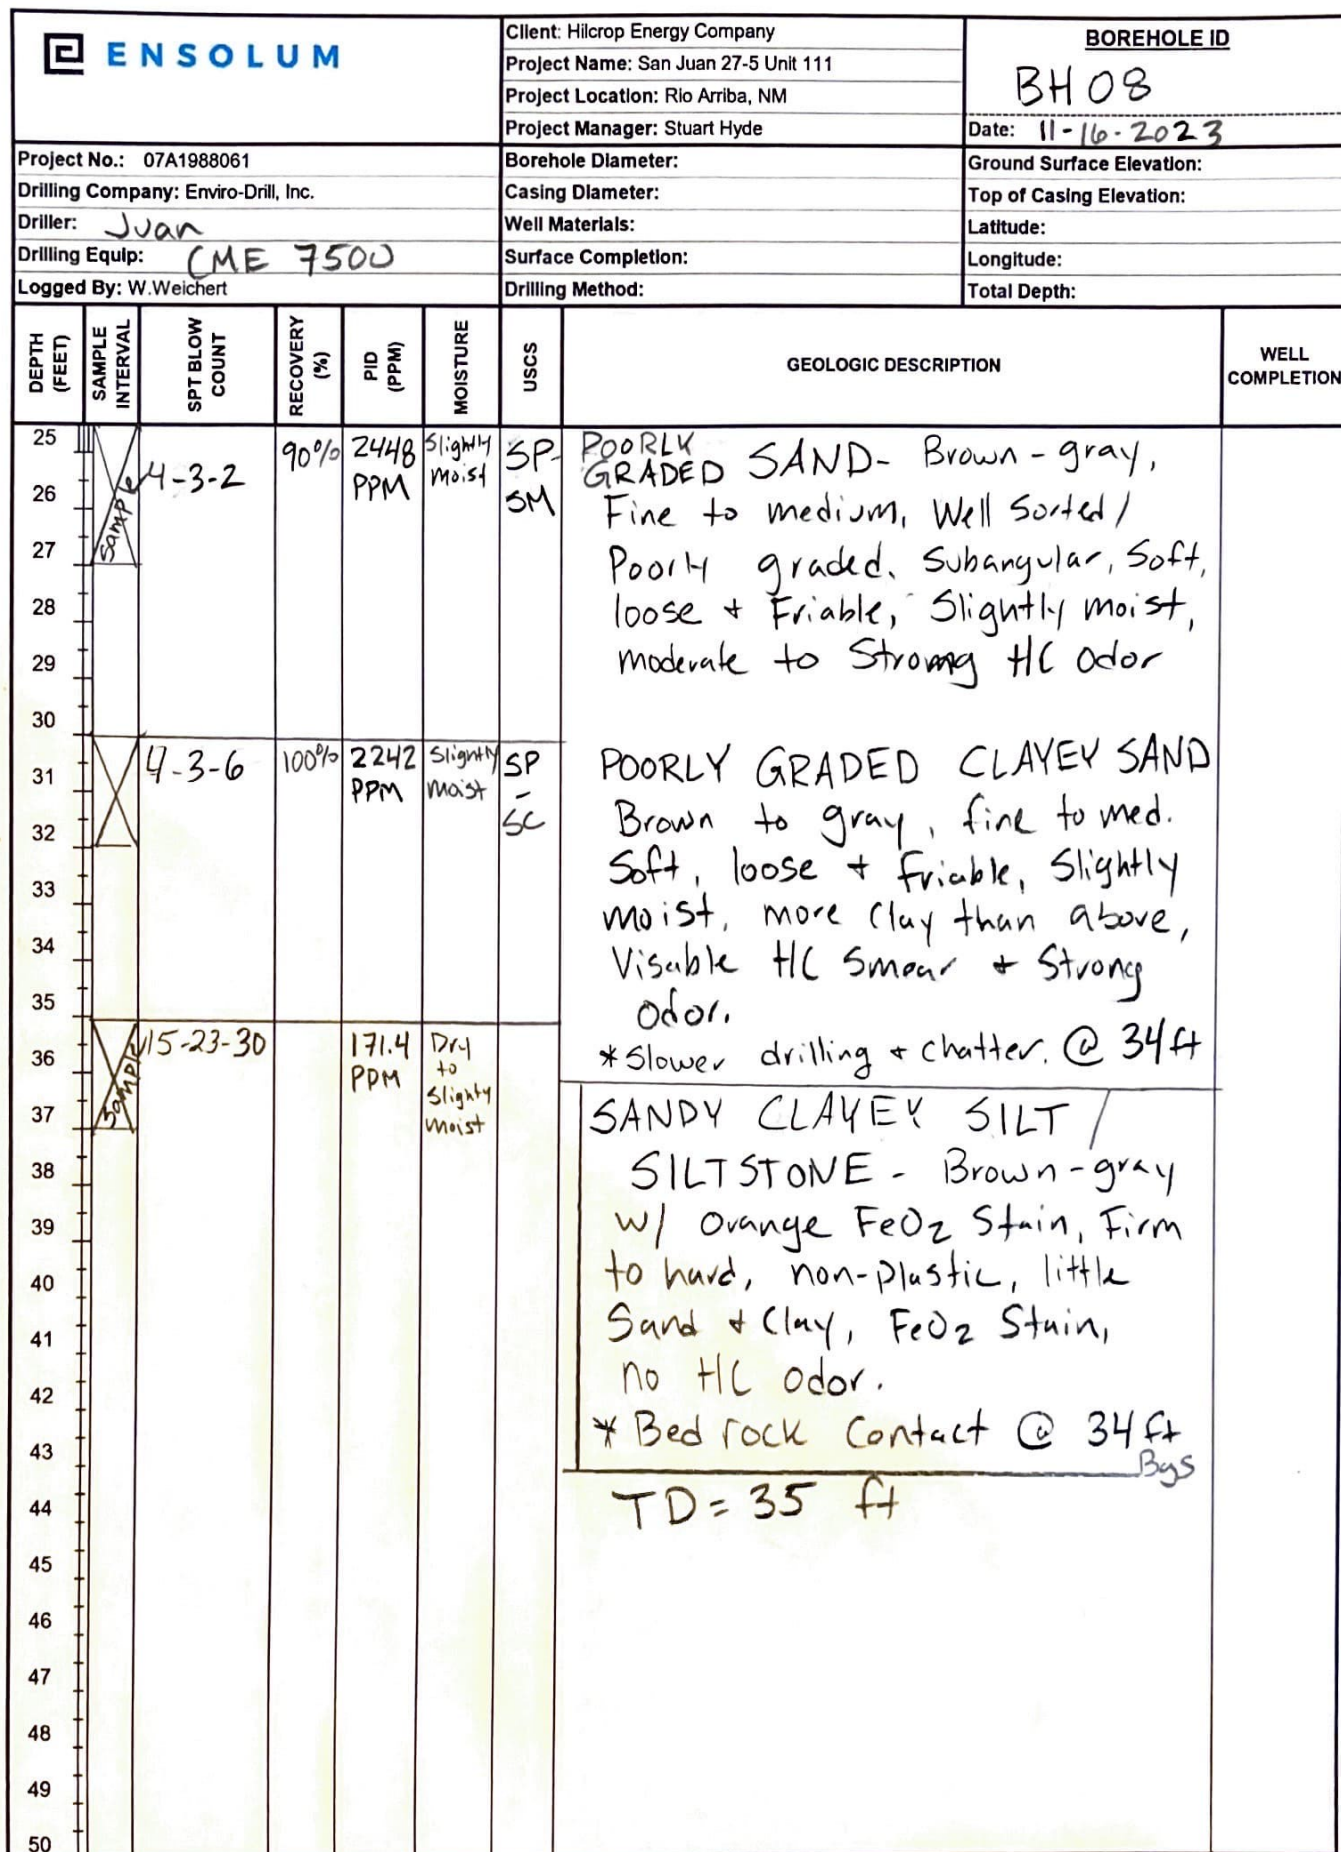 ENSOLUM
Client: Hilcrop Energy Company
Project Name: San Juan 27-5 Unit 111
Project Location: Rio Arriba, NM
Project Manager: Stuart Hyde
BOREHOLE ID
BH08
Date: 11-16-2023
Project No.: 07A1988061
Drilling Company: Enviro-Drill, Inc.
Driller: Juan
Drilling Equip: CME 7500
Logged By: W.Weichert
Borehole Diameter:
Casing Diameter:
Well Materials:
Surface Completion:
Drilling Method:
Ground Surface Elevation:
Top of Casing Elevation:
Latitude:
Longitude:
Total Depth:
DEPTH (FEET)
SAMPLE INTERVAL
SPT BLOW COUNT
RECOVERY (%)
PID (PPM)
MOISTURE
USCS
GEOLOGIC DESCRIPTION
WELL COMPLETION
25
26
27
28
29
30
31
32
33
34
35
36
37
38
39
40
41
42
43
44
45
46
47
48
49
50
Sample
4-3-2
90%
2448
PPM
Slightly
moist
SP-
SM
POORLY
GRADED SAND- Brown-gray,
Fine to medium, Well Sorted/
Poorly graded. Subangular, Soft,
loose + Friable, Slightly moist,
moderate to Stromg HC Odor
4-3-6
100%
2242
PPM
Slightly
moist
SP
-
SC
POORLY GRADED CLAYEY SAND
Brown to gray, fine to med.
Soft, loose + friable, Slightly
moist, more Clay than above,
Visable HC Smear + Strong
Odor.
*Slower drilling + chatter. @ 34 ft
Sample
15-23-30
171.4
PPM
Dry
to
Slighty
moist
SANDY CLAYEY SILT /
SILTSTONE - Brown-gray
w/ orange FeO2 Stain, Firm
to hard, non-plastic, little
Sand + Clay, FeO2 Stain,
no HC odor.
* Bed rock Contact @ 34 ft
Bgs
TD = 35 ft